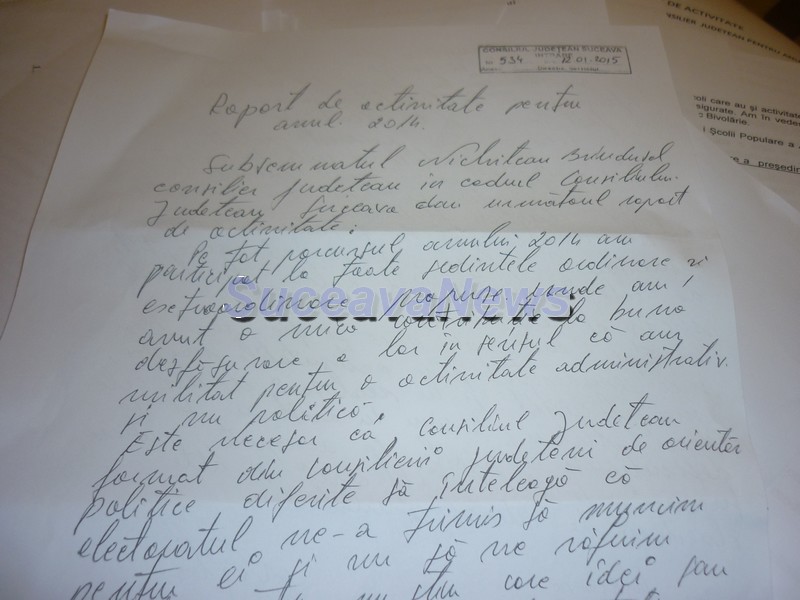 CONSILIUL JUDEȚEAN SUCEAVA
INTRARE
Nr. 534 12 01.2015
Raport de activitate pentru
anul 2014.
Subsemnatul Nichitean Brîndușel
consilier județean în cadrul Consiliului
Județean Suceava dau următorul raport
de activitate:
Pe tot parcursul anului 2014 am
participat la toate ședințele ordinare și
extraordinare propuse unde am
avut o mică la buna
desfășurare a lor în sensul că am
militat pentru o activitate administrativ.
și nu politică.
Este necesar că Consiliul Județean
format din consilieri județeni de orientări
politice diferite să înțeleagă că
electoratul ne-a trimis să muncim
pentru ei și nu să ne răfuim
care idei sau
SuceavaNews
DE ACTIVITATE
SILIER JUDEȚEAN PENTRU
oli care au și activitate
sigurate. Am în vedere
c Bivolărie.
i Școlii Populare a
e a președin